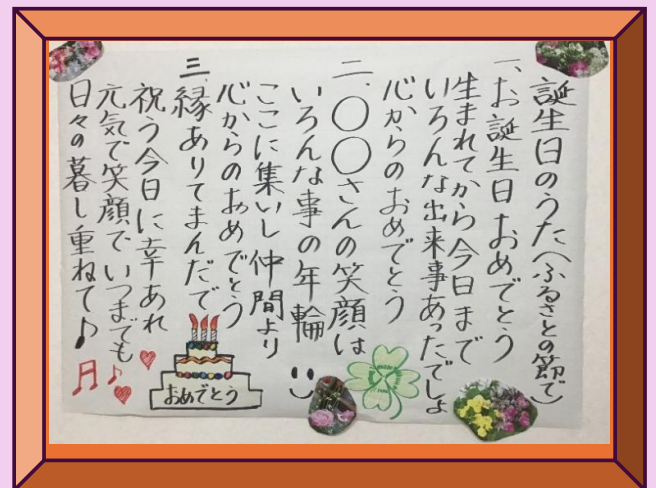 誕生日のうた(ふるさとの節で)
一、お誕生日おめでとう
生まれてから今日まで
いろんな出来事あったでしょ
心からのおめでとう
二、〇〇さんの笑顔は
いろんな事の年輪
ここに集いし仲間より
心からのおめでとう
三、縁ありてまんだで
祝う今日に幸あれ
元気で笑顔でいつまでも
日々の暮し重ねて♪
おめでとう